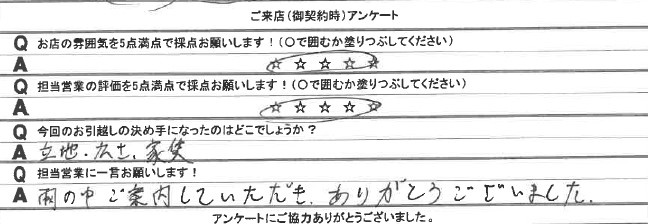 ご来店（御契約時）アンケート
Q お店の雰囲気を5点満点で採点お願いします！（〇で囲むか塗りつぶしてください）
A ☆ ☆ ☆ ☆ ☆
Q 担当営業の評価を5点満点で採点お願いします！（〇で囲むか塗りつぶしてください）
A ☆ ☆ ☆ ☆ ☆
Q 今回のお引越しの決め手になったのはどこでしょうか？
A 立地・広さ、家賃
Q 担当営業に一言お願いします！
A 雨の中ご案内していただき、ありがとうございました。
アンケートにご協力ありがとうございました。